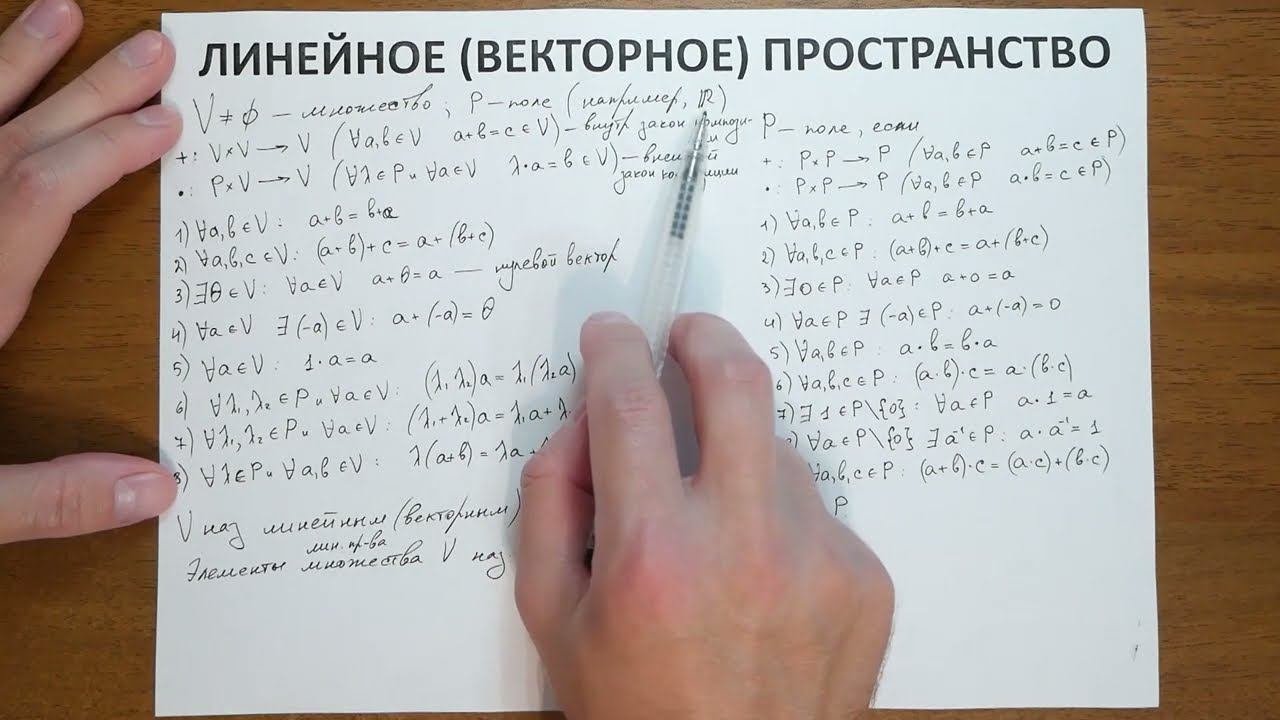 ЛИНЕЙНОЕ (ВЕКТОРНОЕ) ПРОСТРАНСТВО
V ≠ ∅ — множество; P — поле (например, ℝ)
+ : V×V → V (∀a,b∈V a+b=c∈V) — внутр закон
• : P×V → V (∀λ∈P и ∀a∈V λ·a=b∈V) — закон
1) ∀a,b∈V: a+b=b+a
2) ∀a,b,c∈V: (a+b)+c=a+(b+c)
3) ∃θ∈V: ∀a∈V a+θ=a — нулевой вектор
4) ∀a∈V ∃(-a)∈V: a+(-a)=θ
5) ∀a∈V: 1·a=a
6) ∀λ₁,λ₂∈P и ∀a∈V: (λ₁λ₂)a=λ₁(λ₂a)
7) ∀λ₁,λ₂∈P и ∀a∈V: (λ₁+λ₂)a=λ₁a+λ
8) ∀λ∈P и ∀a,b∈V: λ(a+b)=λa+
V наз линейным (векторным)
лин. пр-ва
Элементы множества V наз.
P — поле, если
+ : P×P → P (∀a,b∈P a+b=c∈P)
• : P×P → P (∀a,b∈P a·b=c∈P)
1) ∀a,b∈P: a+b=b+a
2) ∀a,b,c∈P: (a+b)+c=a+(b+c)
3) ∃0∈P: ∀a∈P a+0=a
4) ∀a∈P ∃(-a)∈P: a+(-a)=0
5) ∀a,b∈P: a·b=b·a
6) ∀a,b,c∈P: (a·b)·c=a·(b·c)
7) ∃1∈P\{0}: ∀a∈P a·1=a
∀a∈P\{0} ∃a⁻¹∈P: a·a⁻¹=1
∀a,b,c∈P: (a+b)·c=(a·c)+(b·c)
P